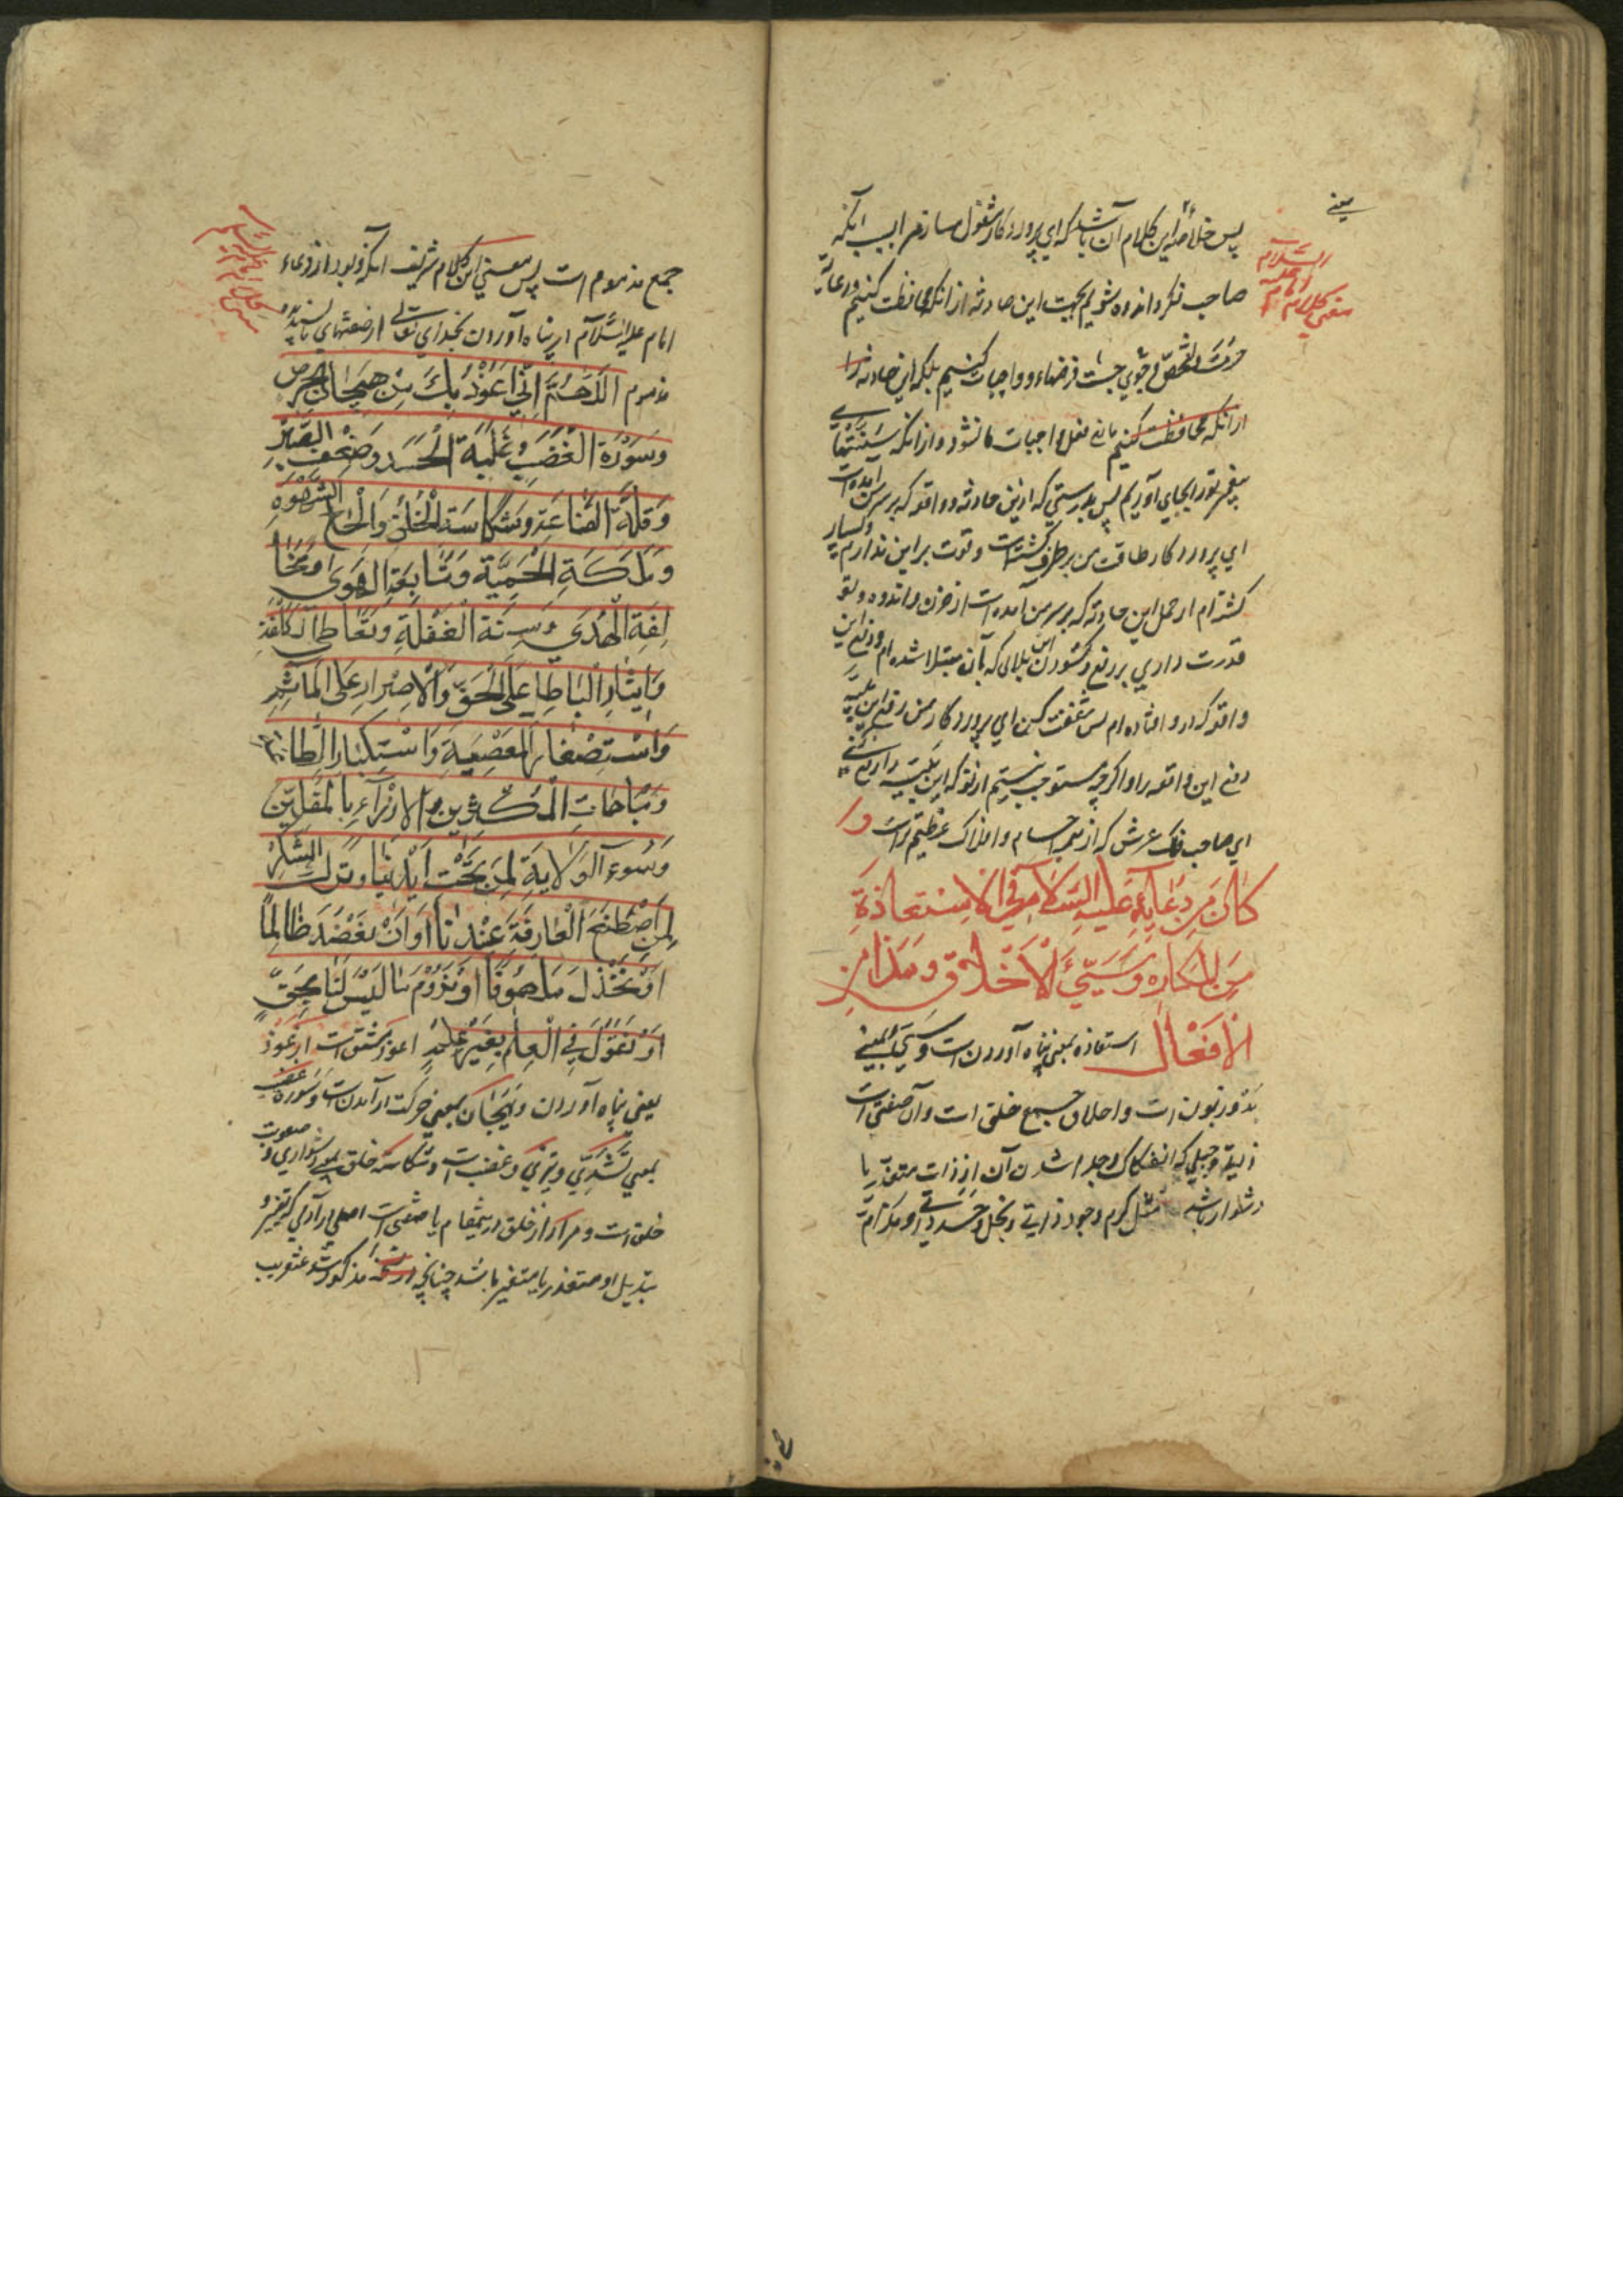 پس خلاصه این کلام آن باشد که ای پروردکار مشغول مساز مرا بسبب آنکه
یعنی
صاحب فکر و اندوه شویم بجهت این حادثه از انکه محافظت کنیم و رعایت
معنی کلام امام علیه السلام
جست فرضهاء و واجبات کنیم بلکه این حادثه را
از انکه محافظت کنیم مانع فعل واجبات ما نشود و از انکه سنتهای
پیغمبر تو را بجای آوریم پس بدرستی که ازین حادثه و واقعه که بر سر من آمده است
ای پروردکار طاقت من بر طرف کشته است و قوت بر این ندارم و بسیار
کشته‌ام از حمل این حادثه که بر سر من آمده است از حزن و اندوه و تو
قدرت داری بر رفع و کشودن این بلائی که بآن مبتلا شده‌ام و دفع این
واقعه که در او افتاده‌ام پس شفقت کن ای پروردکار من رفع این بلیه
دفع این واقعه را و اکرچه مستوجب نیستم از تو که این بلیه را رفع کنی
ای صاحب فلک عرش که از همه اجسام و افلاک عظیم‌تر است و
كان من دعائه عليه السلام في الاستعاذة
من المكاره وسيئ الاخلاق ومذام
الافعال استعاذه بمعنی پناه آوردن است و سیئ بمعنی
بد و زبون است و اخلاق جمع خلق است و آن صفتی است
ذاتیه و جبلی که انفکاک و جدا شدن آن از ذات متعذر یا
دشوار باشد مثل کرم وجود ذاتی و بخل و حسد ذاتی و مذام
جمع مذموم است پس معنی این کلام شریف آنکه و بود از دعاء
امام علیه السلام در پناه آوردن بخدای تعالی از صفتهای ناپسندیده
مذموم اللهم اني اعوذ بك من هيجان الحرص
وسورة الغضب وغلبة الحسد وضعف الصبر
وقلة القناعة وشكاسة الخلق والحاح الشهوة
وملكة الحمية ومتابعة الهوى ومخا
لفة الهدى وسنة الغفلة وتعاطي الكلفة
وايثار الباطل على الحق والاصرار على المآثم
واستصغار المعصية واستكبار الطاعة
ومباهات المكثرين والازراء بالمقلين
وسوء الولاية لمن تحت ايدينا وترك الشكر
لمن اصطنع العارفة عندنا او ان نعضد ظالما
او نخذل ملهوفا او نروم ما ليس لنا بحق
او نقول في العلم بغير علم اعوذ مشتق است از عوذ
یعنی پناه آوردن و هیجان بمعنی حرکت در آمدن است و سورة غضب
بمعنی تندی و تیزی و غضب است و شکاسة خلق بمعنی دشواری و صعوبت
خلق است و مراد از خلق در ینمقام یا صفتی است اصلی در آدمی که تغییر و
تبدیل او متعذر یا متغیر باشد چنانچه مذکور شد عنقریب